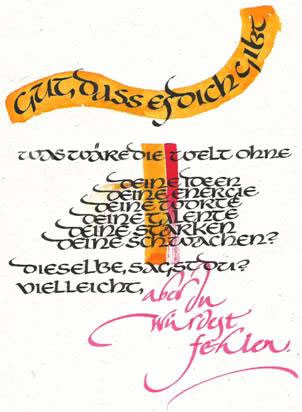 Gut, dass es dich gibt
was wäre die welt ohne
deine Ideen
deine Energie
deine Worte
deine Talente
deine Stärken
deine Schwächen?
dieselbe, sagst du?
vielleicht, aber du
würdest
fehlen.